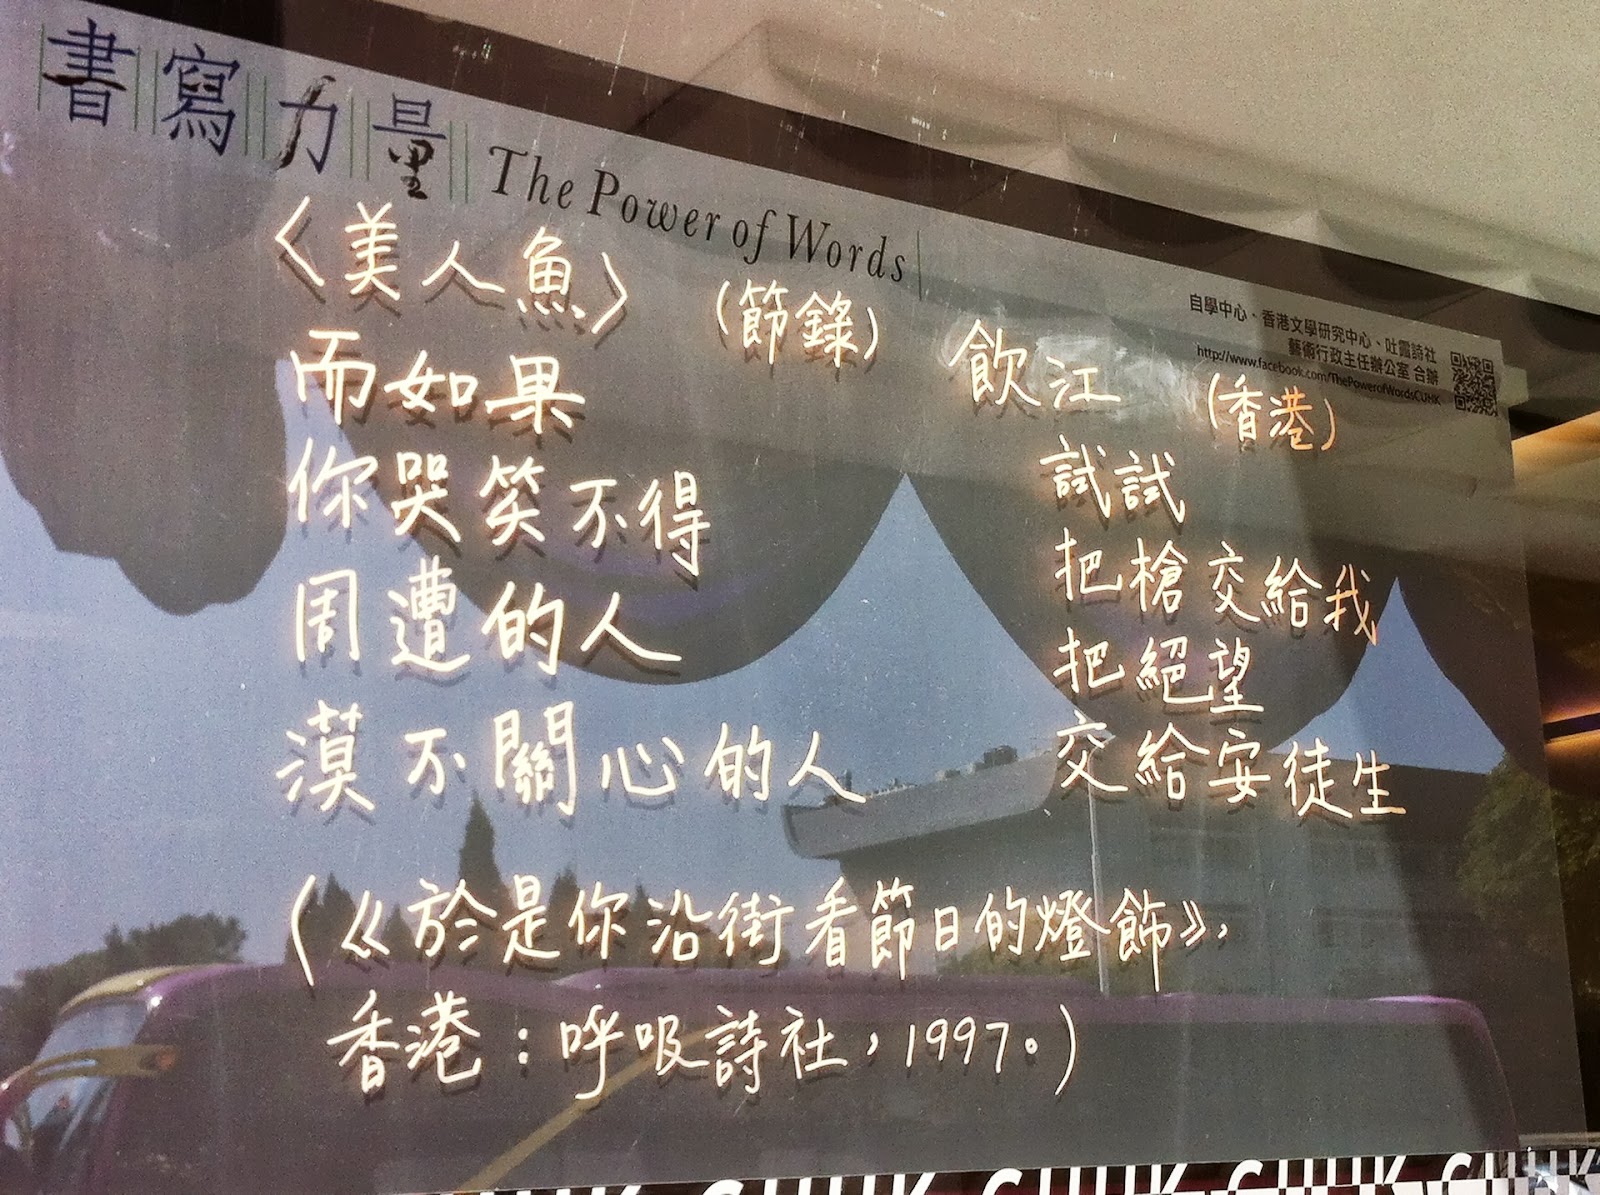 書寫力量 The Power of Words
自學中心、香港文學研究中心、吐露詩社
藝術行政主任辦公室 合辦
http://www.facebook.com/ThePowerofWordsCUHK
〈美人魚〉 (節錄) 飲江 (香港)
而如果
你哭笑不得
周遭的人
漠不關心的人
試試
把槍交給我
把絕望
交給安徒生
(《於是你沿街看節日的燈飾》,
香港：呼吸詩社，1997。)
CUHK CUHK CUHK CUHK